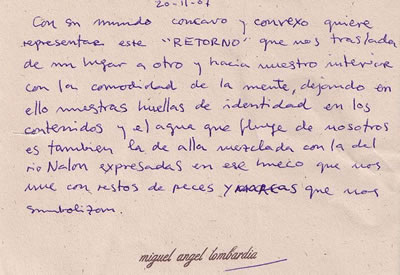 20-11-07
Con su mundo concavo y convexo quiere
representar este "RETORNO" que nos traslada
de un lugar a otro y hacia nuestro interior
con la comodidad de la mente, dejando en
ello nuestras huellas de identidad en los
contenidos y el agua que fluye de nosotros
es tambien la de alla mezclada con la del
rio Nalon expresadas en ese hueco que nos
une con restos de peces y que nos
simbolizan.
miguel angel lombardia